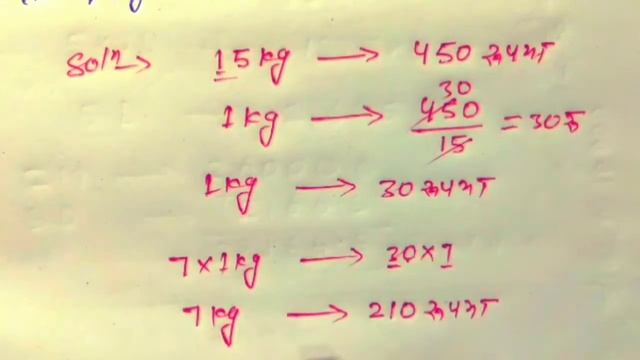 Soln → 15kg → 450 रुपया
1kg → 450/15 30 = 30रु
1kg → 30 रुपया
7×1kg → 30×7
7kg → 210 रुपया